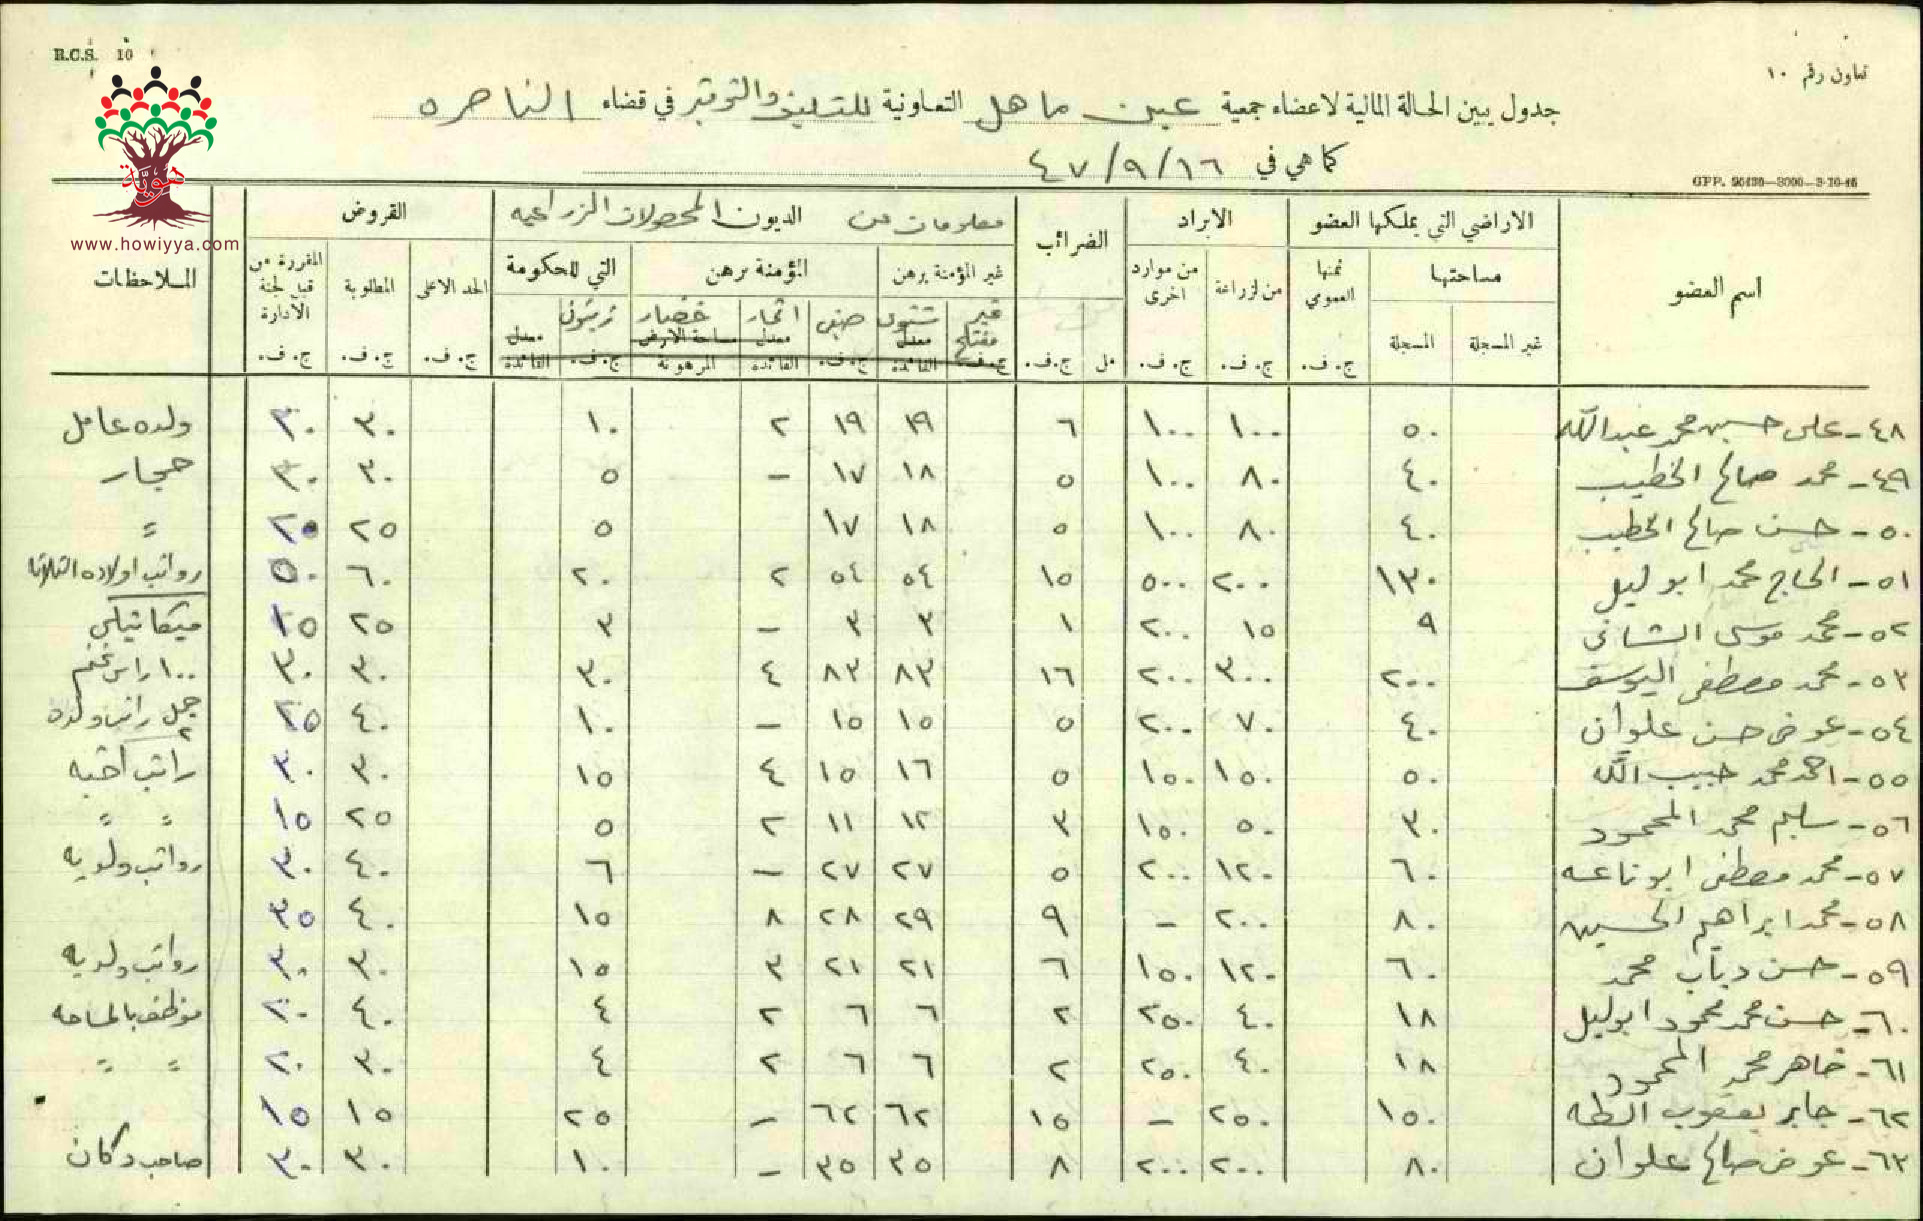 R.C.S. 10
تعاون رقم ١٠
جدول يبين الحالة المالية لاعضاء جمعية عين ماهل التعاونية للتسليف والتوفير في قضاء الناصره
كما هي في ٤٧/٩/١٦
هوية
www.howiyya.com
اسم العضو
الاراضي التي يملكها العضو
الايراد
الضرائب
معلومات عن الديون المحصولات الزراعيه
القروض
الملاحظات
مساحتها
ثمنها العمومي
من لزراعة
من موارد اخرى
غير المؤمنة برهن
المؤمنة برهن
التي للحكومة
الحد الاعلى
المطلوبة
المقررة من قبل لجنة الأدارة
غير المسجلة
المسجلة
غير مفتلح
شتوي
صيفي
اثمار
خضار
زيتون
معدل الفائدة
مساحة الارض المرهونة
معدل الفائدة
ج. ف.
مل
٤٨- علي حسين محمد عبدالله ٥٠ ١٠٠ ١٠٠ ٦ ١٩ ١٩ ٢ ١٠ ٣٠ ٢٠ ولده عامل
٤٩- محمد صالح الخطيب ٤٠ ٨٠ ١٠٠ ٥ ١٨ ١٧ – ٥ ٣٠ ٢٠ حجار
٥٠- حسن صالح الخطيب ٤٠ ٨٠ ١٠٠ ٥ ١٨ ١٧ ٥ ٢٥ ٢٠ =
٥١- الحاج محمد ابو ليل ١٣٠ ٢٠٠ ٥٠٠ ١٥ ٥٤ ٥٤ ٢ ٢٠ ٦٠ ٥٠ رواتب اولاده الثلاثه
٥٢- محمد موسى ٩ ١٥ ٢٠٠ ١ ٣ ٣ – ٣ ٢٥ ١٥ ميكانيكي
٥٣- محمد مصطفى اليوسف ٢٠٠ ٣٠٠ ٢٠٠ ١٦ ٨٣ ٨٣ ٤ ٣٠ ٣٠ ٣٠ ١٠٠ راس غنم
٥٤- عوض حسن علوان ٤٠ ٧٠ ٢٠٠ ٥ ١٥ ١٥ – ١٠ ٤٠ ٢٥ جمل راتب ولده ٢
٥٥- احمد محمد حبيب الله ٥٠ ١٥٠ ١٥٠ ٥ ١٦ ١٥ ٤ ١٥ ٣٠ ٣٠ راتب اخيه
٥٦- سليم محمد المحمود ٣٠ ٥٠ ١٥٠ ٣ ١٢ ١١ ٢ ٥ ٢٥ ١٥ = =
٥٧- محمد مصطفى ابو ناعسه ٦٠ ١٢٠ ٢٠٠ ٥ ٢٧ ٢٧ – ٦ ٤٠ ٣٠ رواتب ولديه
٥٨- محمد ابراهيم الحسين ٨٠ ٢٠٠ – ٩ ٢٩ ٢٨ ٨ ١٥ ٤٠ ٣٥
٥٩- حسن دياب محمد ٦٠ ١٢٠ ١٥٠ ٦ ٢١ ٢١ ٣ ١٥ ٣٠ ٣٠ رواتب ولديه
٦٠- حسن محمد محمود ابوليل ١٨ ٤٠ ٢٥٠ ٢ ٦ ٦ ٢ ٤ ٤٠ ٢٠ موظف بالمساحه
٦١- ظاهر محمد المحمود ١٨ ٤٠ ٢٥٠ ٢ ٦ ٦ ٢ ٤ ٣٠ ٢٠ = =
٦٢- جابر يعقوب الطه ١٥٠ ٢٥٠ – ١٥ ٦٢ ٦٢ – ٢٥ ١٥ ١٥
٦٣- عوض صالح علوان ٨٠ ٢٠٠ ٢٠٠ ٨ ٣٥ ٣٥ – ١٠ ٣٠ ٣٠ صاحب دكان